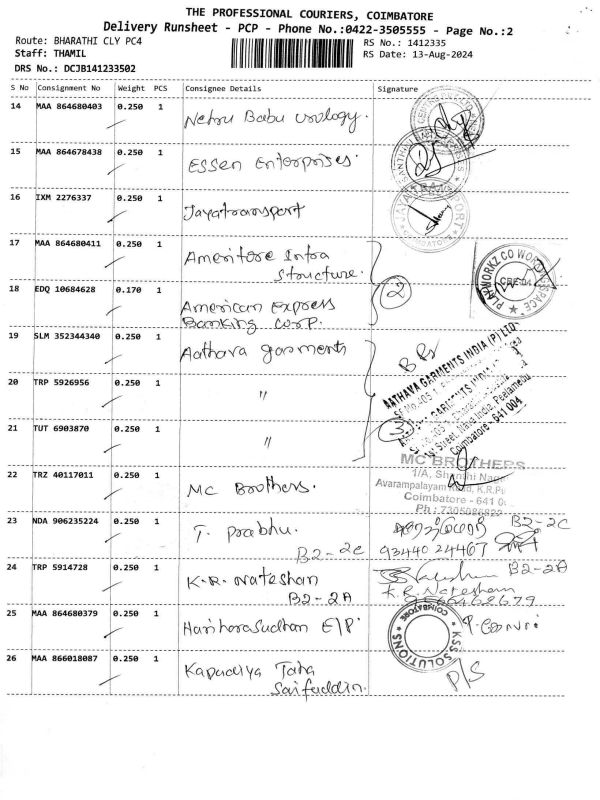 THE PROFESSIONAL COURIERS, COIMBATORE
Delivery Runsheet - PCP - Phone No.:0422-3505555 - Page No.:2
Route: BHARATHI CLY PC4
RS No.: 1412335
Staff: THAMIL
RS Date: 13-Aug-2024
DRS No.: DCJB141233502
S No Consignment No Weight PCS Consignee Details Signature
14 MAA 864680403 0.250 1 Nehru Babu urology.
15 MAA 864678438 0.250 1 Essen Enterprises.
16 IXM 2276337 0.250 1 Jayatransport
17 MAA 864680411 0.250 1 Ameritore Infra
Structure.
2
PLAY WORKZ CO WORK SPACE
CBE-04
18 EDQ 10684628 0.170 1 American Express
Banking Corp.
19 SLM 352344340 0.250 1 Aathava garments
AATHAVA GARMENTS INDIA (P) LTD
20 TRP 5926956 0.250 1 "
21 TUT 6903870 0.250 1 "
3
Nava India, Peelamedu
Coimbatore - 641 004
22 TRZ 40117011 0.250 1 MC Brothers.
MC BROTHERS
1/A, Shanthi Nagar
Avarampalayam Road, K.R.Pu
Coimbatore - 641 0
23 NDA 906235224 0.250 1 T. Prabhu.
B2-2C
B2-2C
93440 24467
24 TRP 5914728 0.250 1 K.R. Nateshan
B2-2A
B2-2A
K.R. Natesham
25 MAA 864680379 0.250 1 Hariharasudhan E/P.
KSS SOLUTIONS
COIMBATORE
26 MAA 866018087 0.250 1 Kapadiya Taha
Saifuddin.
P/S